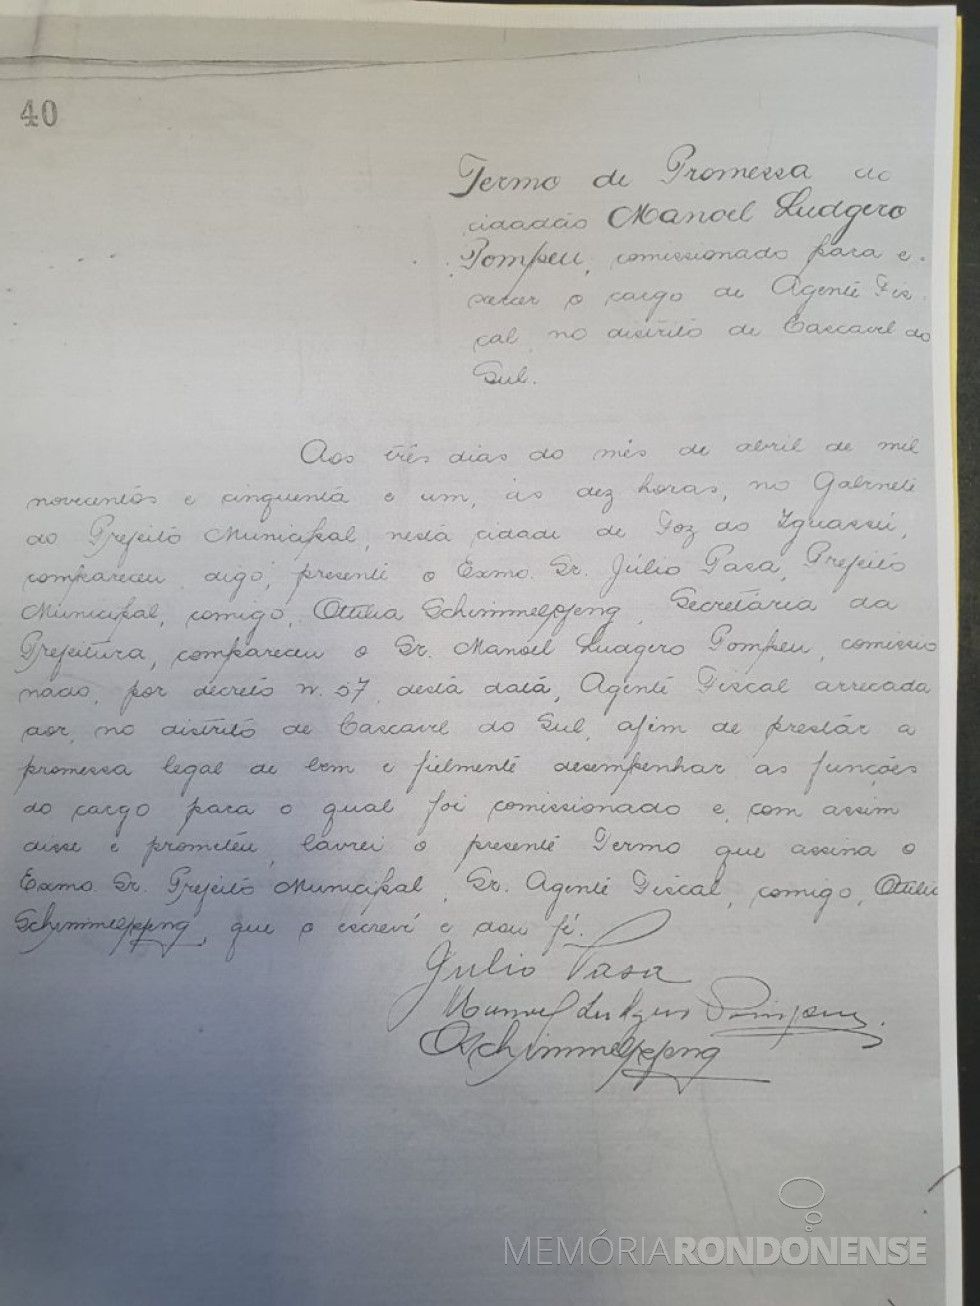 40
Termo de Promessa ao
cidadão Manoel Ludgero
Pompeu, comissionado para e-
xercer o cargo de Agente Fis-
cal no distrito de Cascavel do
Sul.
Aos três dias do mês de abril de mil
novecentos e cinquenta e um, às dez horas, no Gabinete
do Prefeito Municipal, nesta cidade de Foz do Iguassú,
compareceu, digo, presente o Exmo. Sr. Júlio Pasa, Prefeito
Municipal, comigo, Ottilia Schimmelpfeng, Secretária da
Prefeitura, compareceu o Sr. Manoel Ludgero Pompeu, comissio
nado, por decreto n. 57, desta data, Agente Fiscal arrecada
dor, no distrito de Cascavel do Sul, afim de prestar a
promessa legal de bem e fielmente desempenhar as funções
do cargo para o qual foi comissionado e, com assim
disse e prometeu, lavrei o presente Termo que assina o
Exmo. Sr. Prefeito Municipal, Sr. Agente Fiscal, comigo, Ottilia
Schimmelpfeng, que o escreví e dou fé.
Julio Pasa
Manoel Ludgero Pompeu.
OSchimmelpfeng
MEMÓRIARONDONENSE